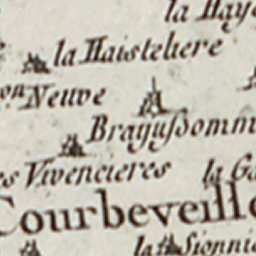 la Hay
la Haistehere
on Neuve
Brayußomm
es Vivencieres la Ga
Courbeveille
la Sionni